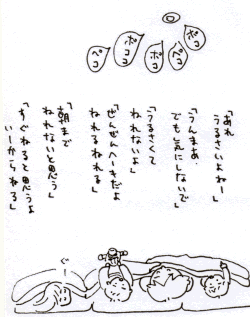 ポココ
ペコ
ポコ
ポココ
ペココ
「あれ
うるさいよねー」
「うんまあ
でも気にしないで」
「うるさくて
ねれないよ」
「ぜんぜんヘーキだよ
ねれるねれる」
「朝まで
ねれないと思う」
「すぐねると思うよ
いーからねる」
ぐ